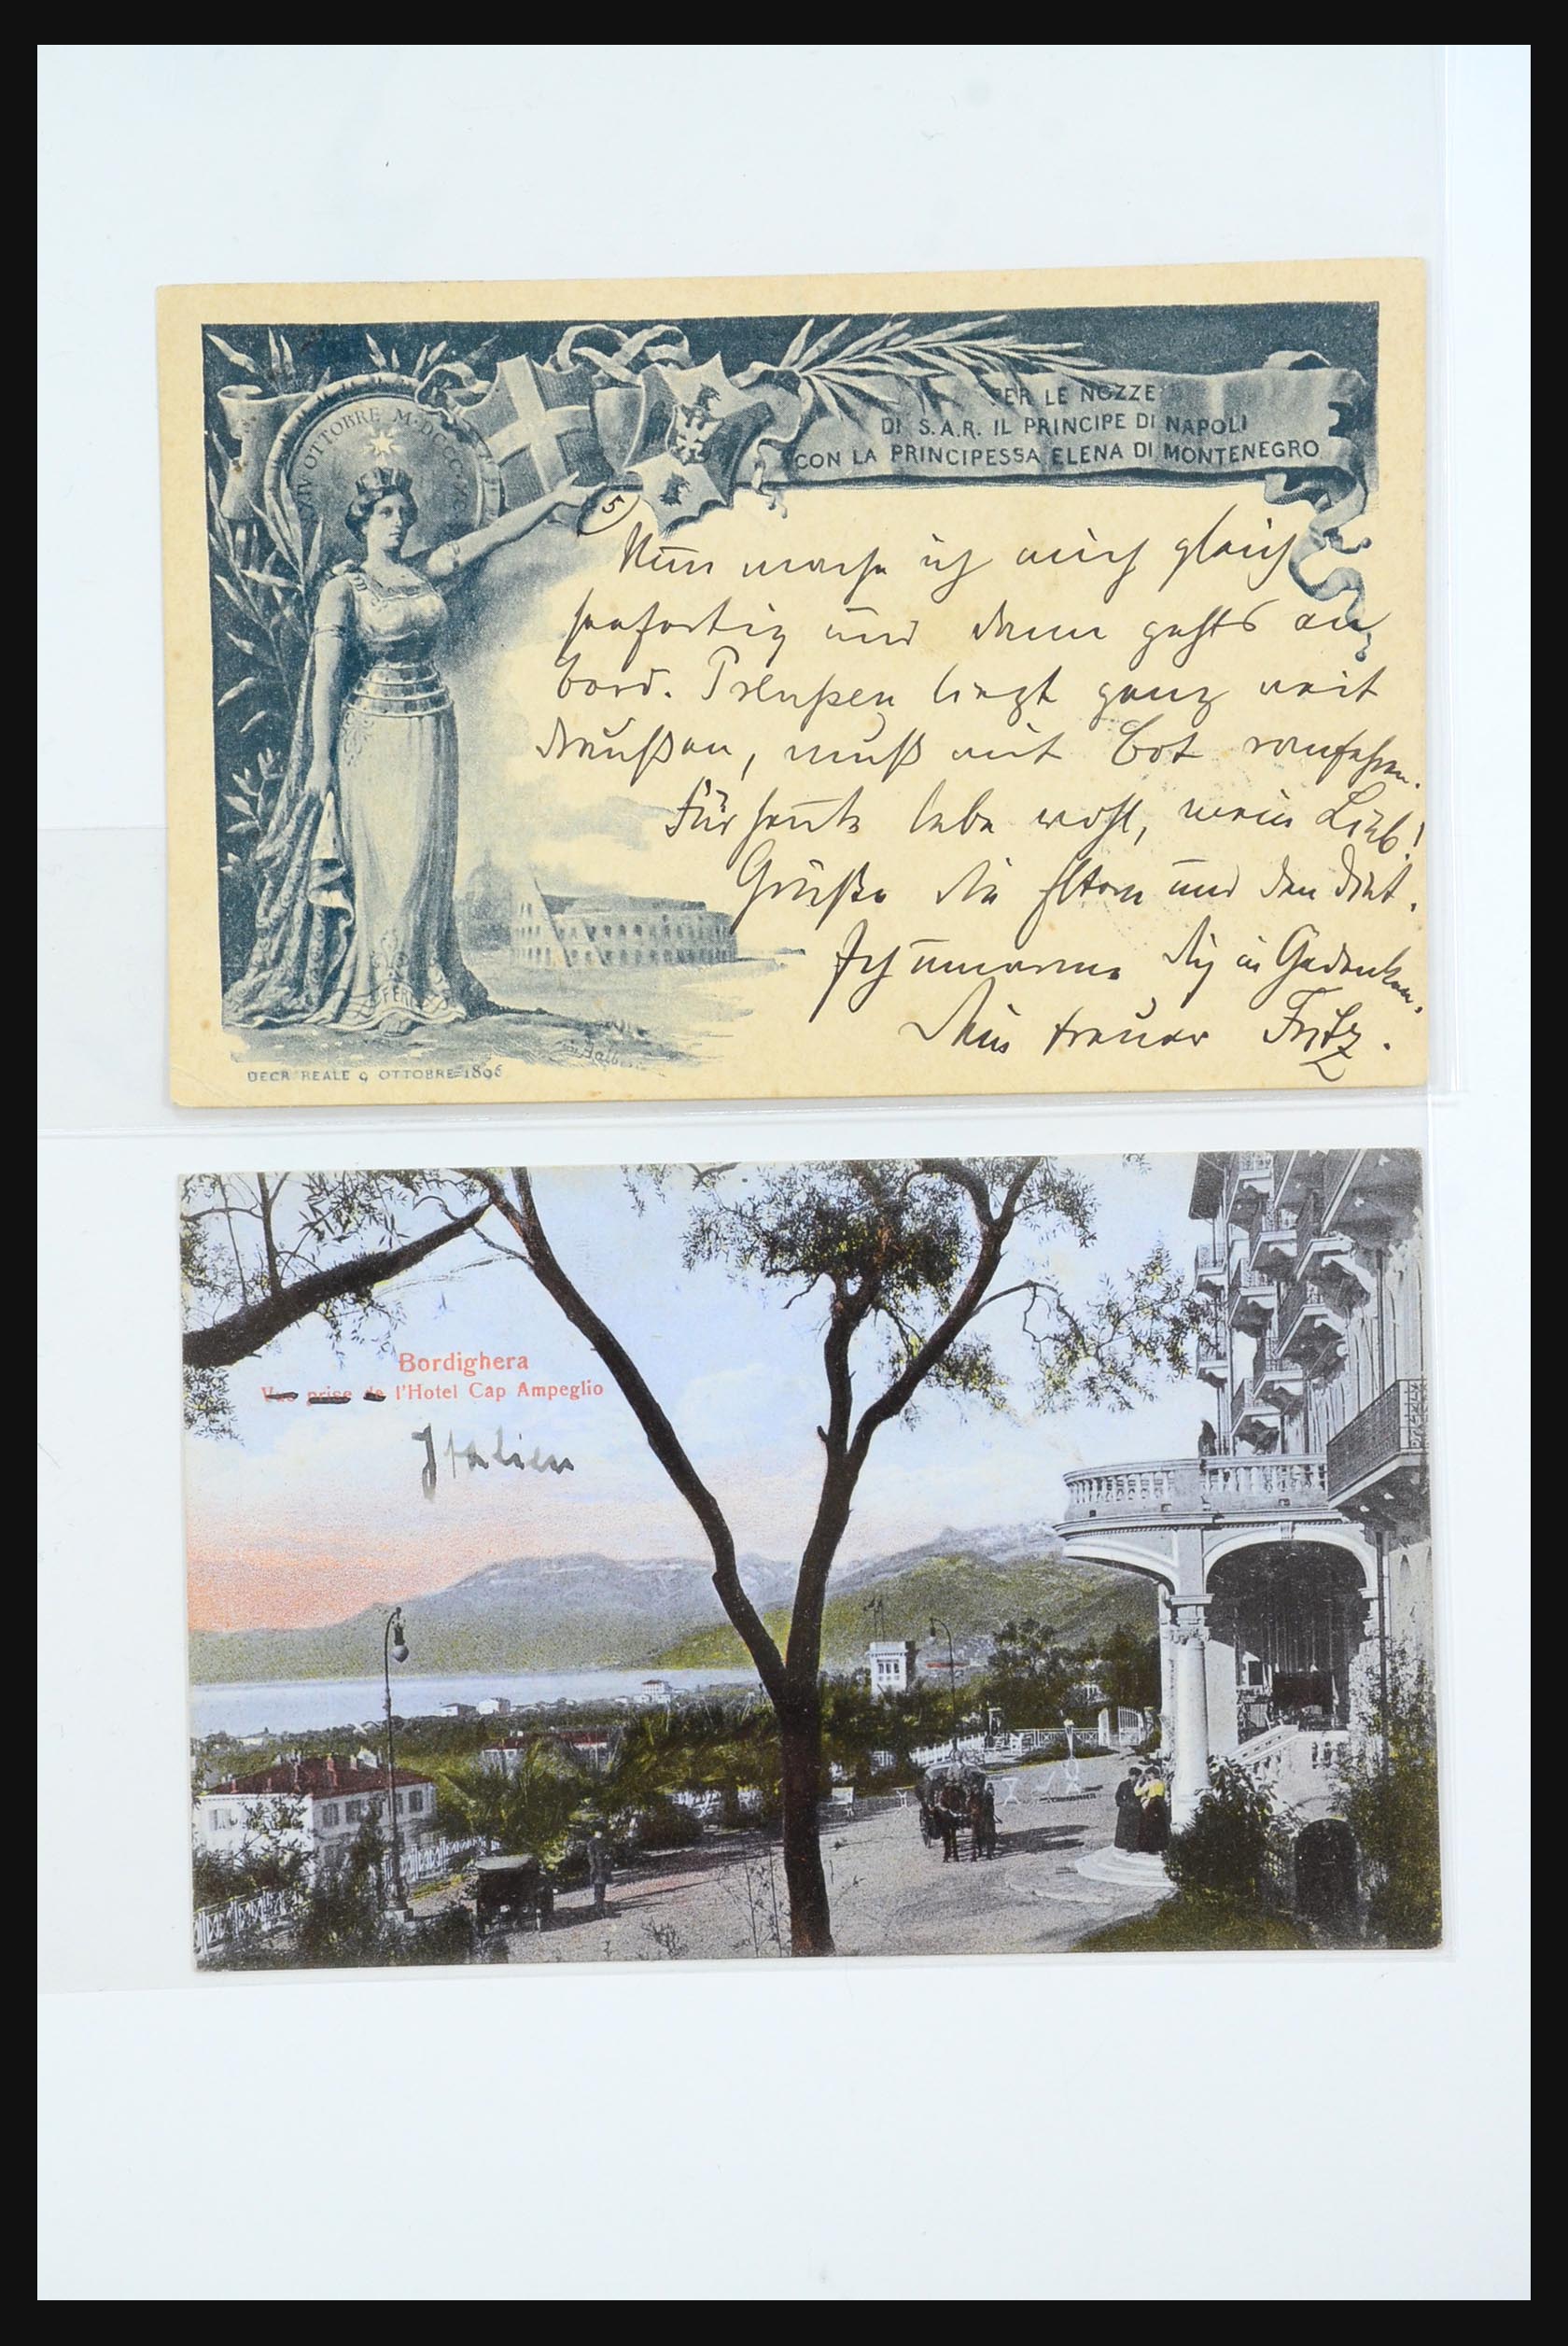 XXIV OTTOBRE M·DCCC·XC
PER LE NOZZE
DI S.A.R. IL PRINCIPE DI NAPOLI
CON LA PRINCIPESSA ELENA DI MONTENEGRO
5
Nun mache ich mich gleich
seefertig und dann gehts an
bord. Preußen liegt ganz weit
draußen, muß mit Bot ranfahren.
Für heute lebe wohl, mein Lieb!
Grüße die Eltern und den
Ich umarme dich in Gedanken.
Dein treuer Fritz.
FERT
DECR REALE 9 OTTOBRE 1896
Bordighera
Vue prise de l'Hotel Cap Ampeglio
Italien